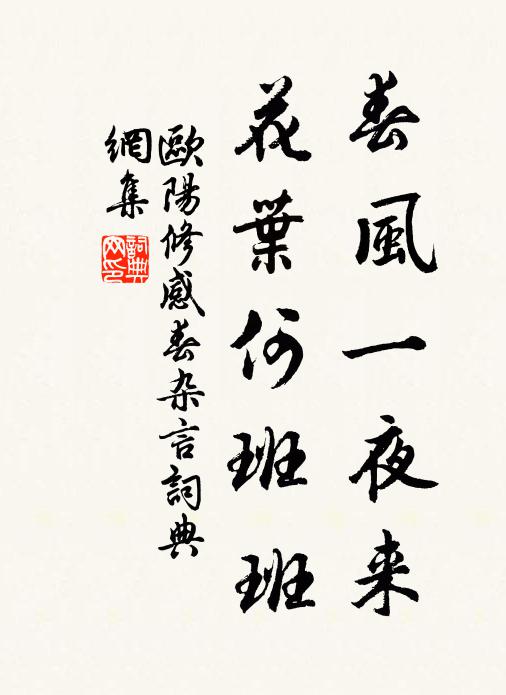 春風一夜来
花葉何班班
歐陽修感春杂言詞典
網集
詞典网印